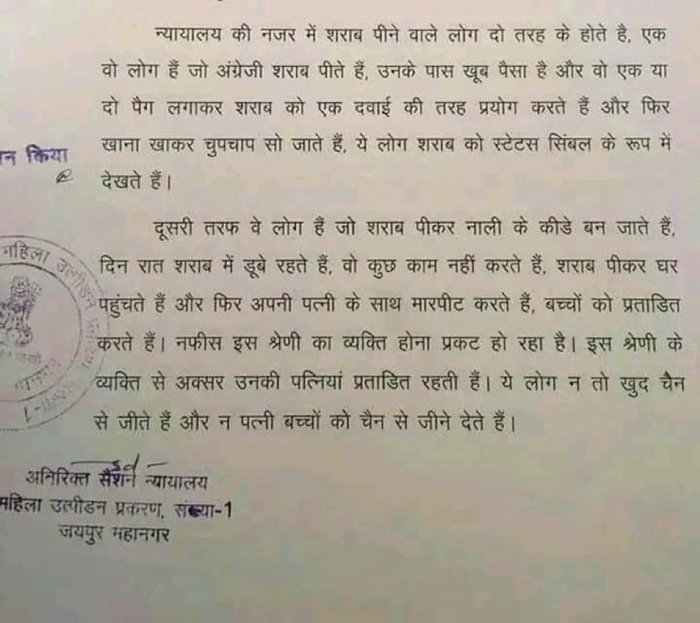 न्यायालय की नजर में शराब पीने वाले लोग दो तरह के होते है, एक
वो लोग हैं जो अंग्रेजी शराब पीते हैं, उनके पास खूब पैसा है और वो एक या
दो पैग लगाकर शराब को एक दवाई की तरह प्रयोग करते हैं और फिर
खाना खाकर चुपचाप सो जाते हैं, ये लोग शराब को स्टेटस सिंबल के रूप में
देखते हैं।
किया
दूसरी तरफ वे लोग हैं जो शराब पीकर नाली के कीडे बन जाते हैं,
दिन रात शराब में डूबे रहते हैं, वो कुछ काम नहीं करते हैं, शराब पीकर घर
पहुंचते हैं और फिर अपनी पत्नी के साथ मारपीट करते हैं, बच्चों को प्रताडित
करते हैं। नफीस इस श्रेणी का व्यक्ति होना प्रकट हो रहा है। इस श्रेणी के
व्यक्ति से अक्सर उनकी पत्नियां प्रताडित रहती हैं। ये लोग न तो खुद चैन
से जीते हैं और न पत्नी बच्चों को चैन से जीने देते हैं।
महिला उत्पीडन
sd
अतिरिक्त सैशन न्यायालय
महिला उत्पीडन प्रकरण, संख्या-1
जयपुर महानगर